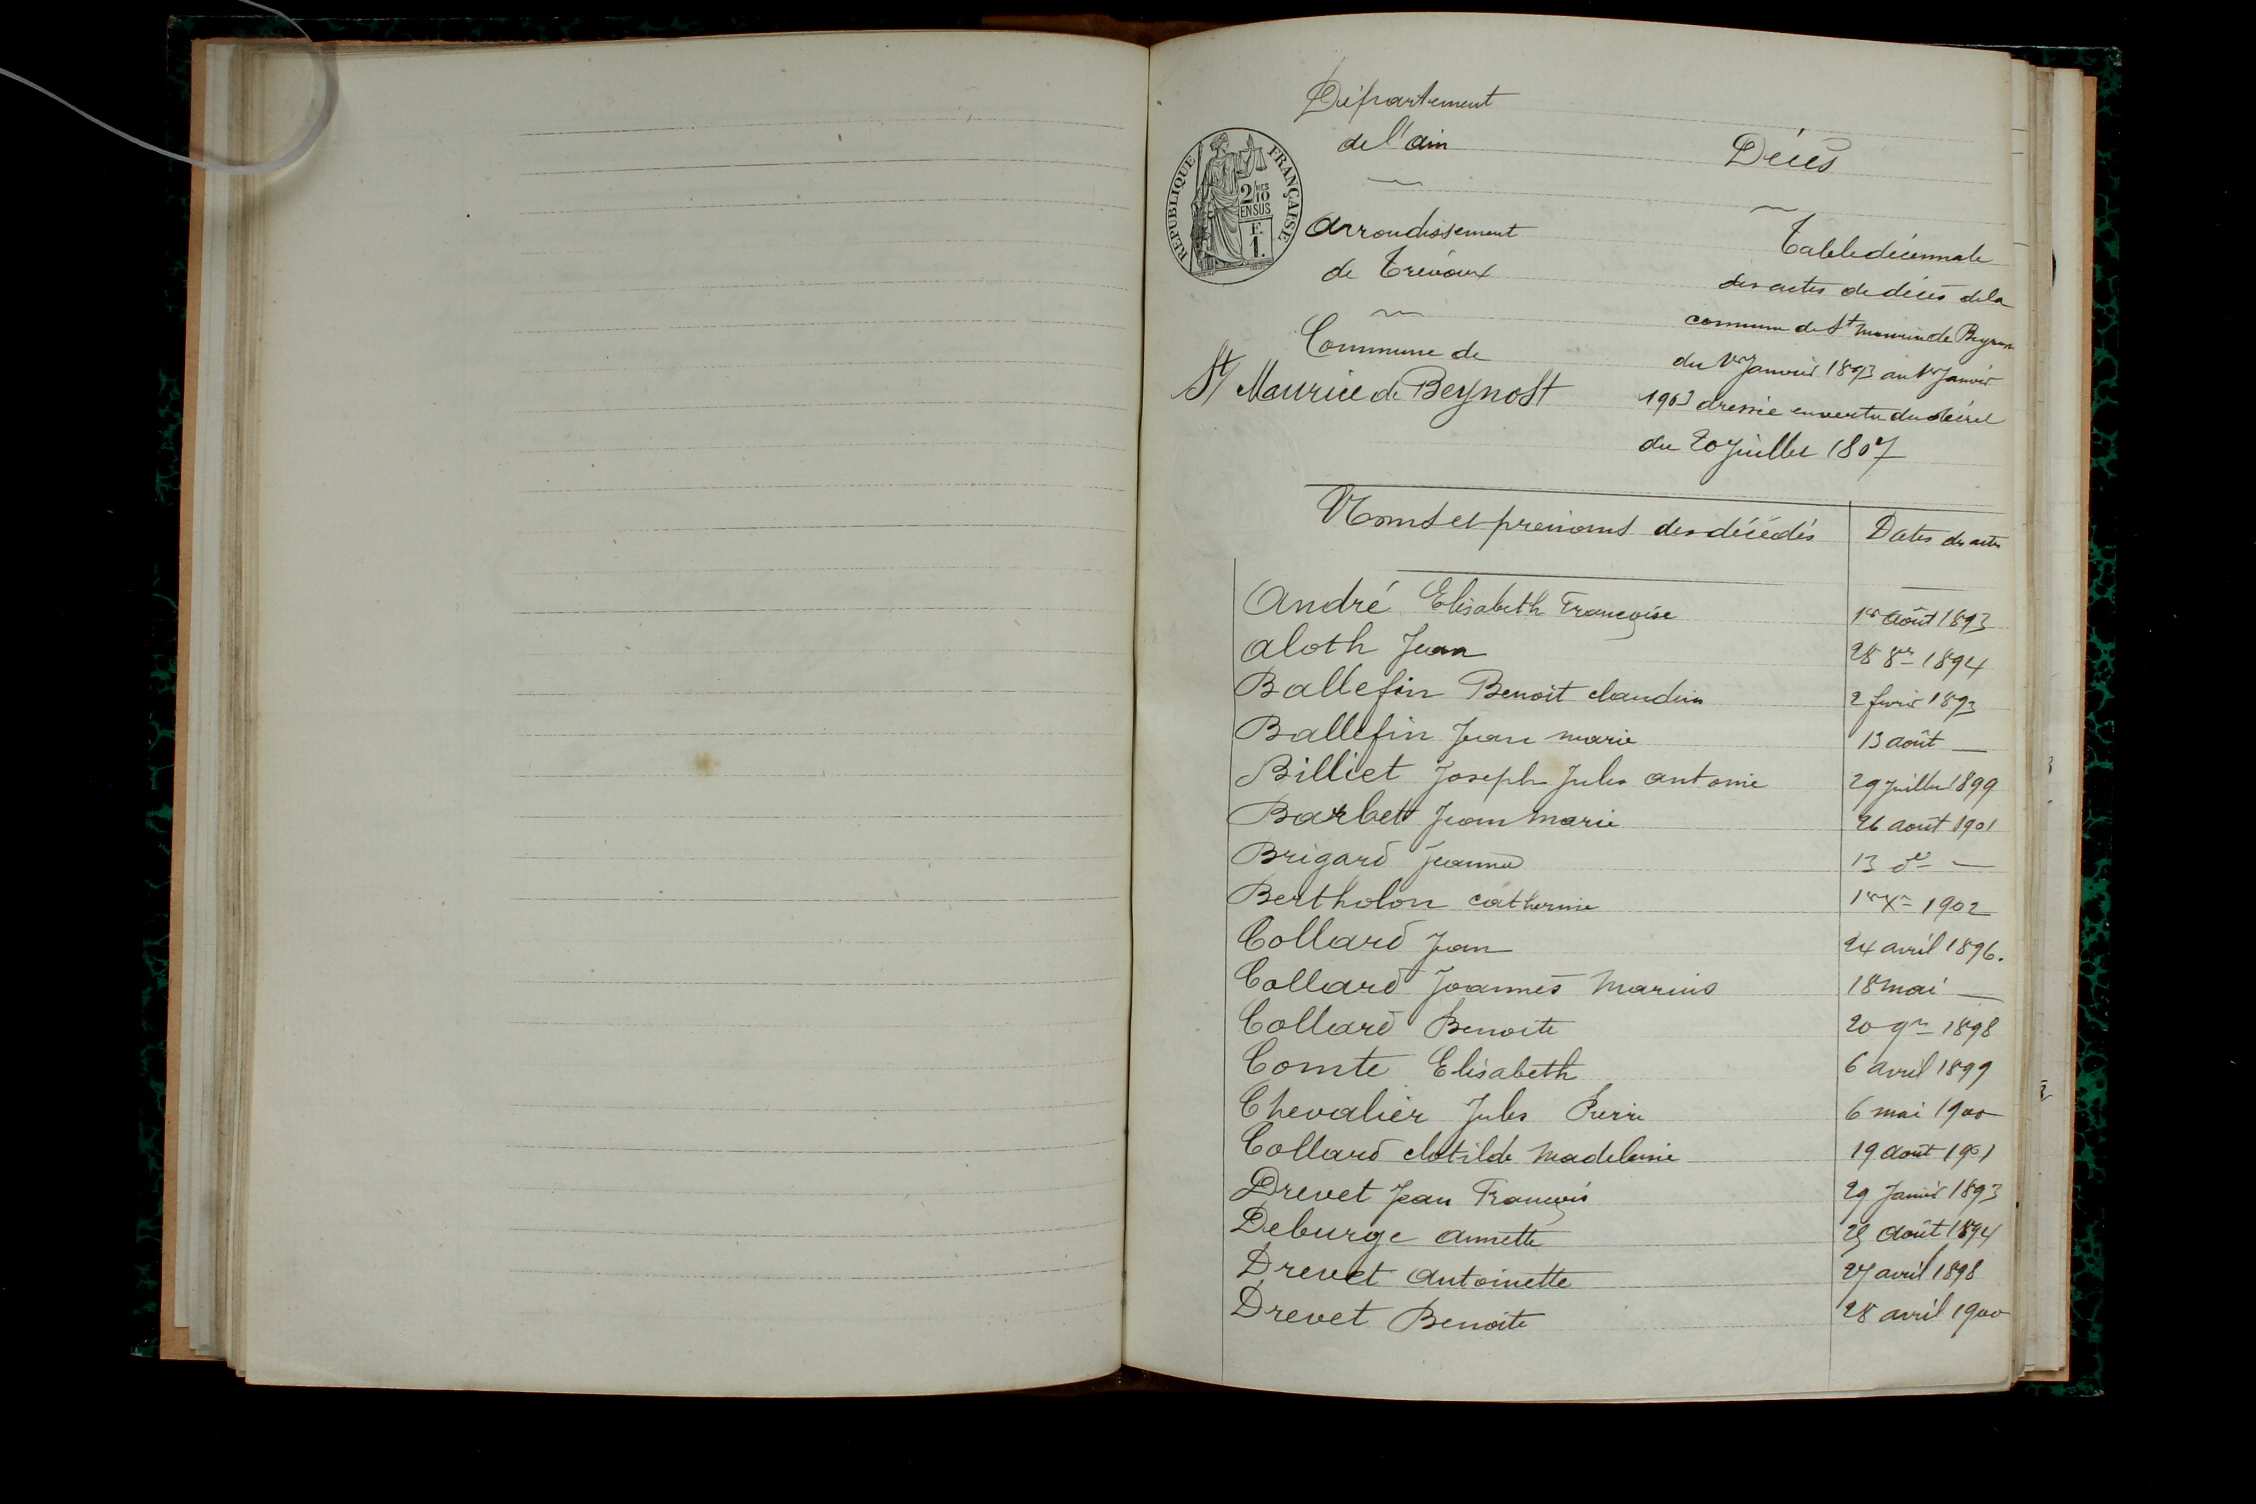 Département
de l'ain
Arrondissement
de Trévoux
Commune de
St Maurice de Beynost
RÉPUBLIQUE FRANÇAISE
2/10 EN SUS
F. 1.
Décès
Table décennale
des actes de décès de la
commune de St Maurice de Beynost
du 1er Janvier 1893 au 1er Janvier
1903 dressée en vertu du décret
du 20 Juillet 1807
Noms et prenoms des décédés Dates des actes
André Elisabeth Françoise 1er août 1893
Aloth Jean 28 8re 1894
Ballefin Benoit claudin 2 fevrier 1893
Ballefin Jean marie 13 août —
Billiet Joseph Jules antoine 29 Juillet 1899
Barbet Jean Marie 26 août 1901
Brigard Jeanne 13 do —
Bertholon catherine 1er Xre 1902
Collard Jean 24 avril 1896.
Collard Joannès Marius 18 mai —
Collard Benoite 20 9re 1898
Comte Elisabeth 6 avril 1899
Chevalier Jules Pierre 6 mai 1900
Collard clotilde Madeleine 19 août 1901
Drevet Jean François 29 Janvier 1893
Deburge annette août 1894
Drevet antoinette 27 avril 1898
Drevet Benoite 28 avril 1900